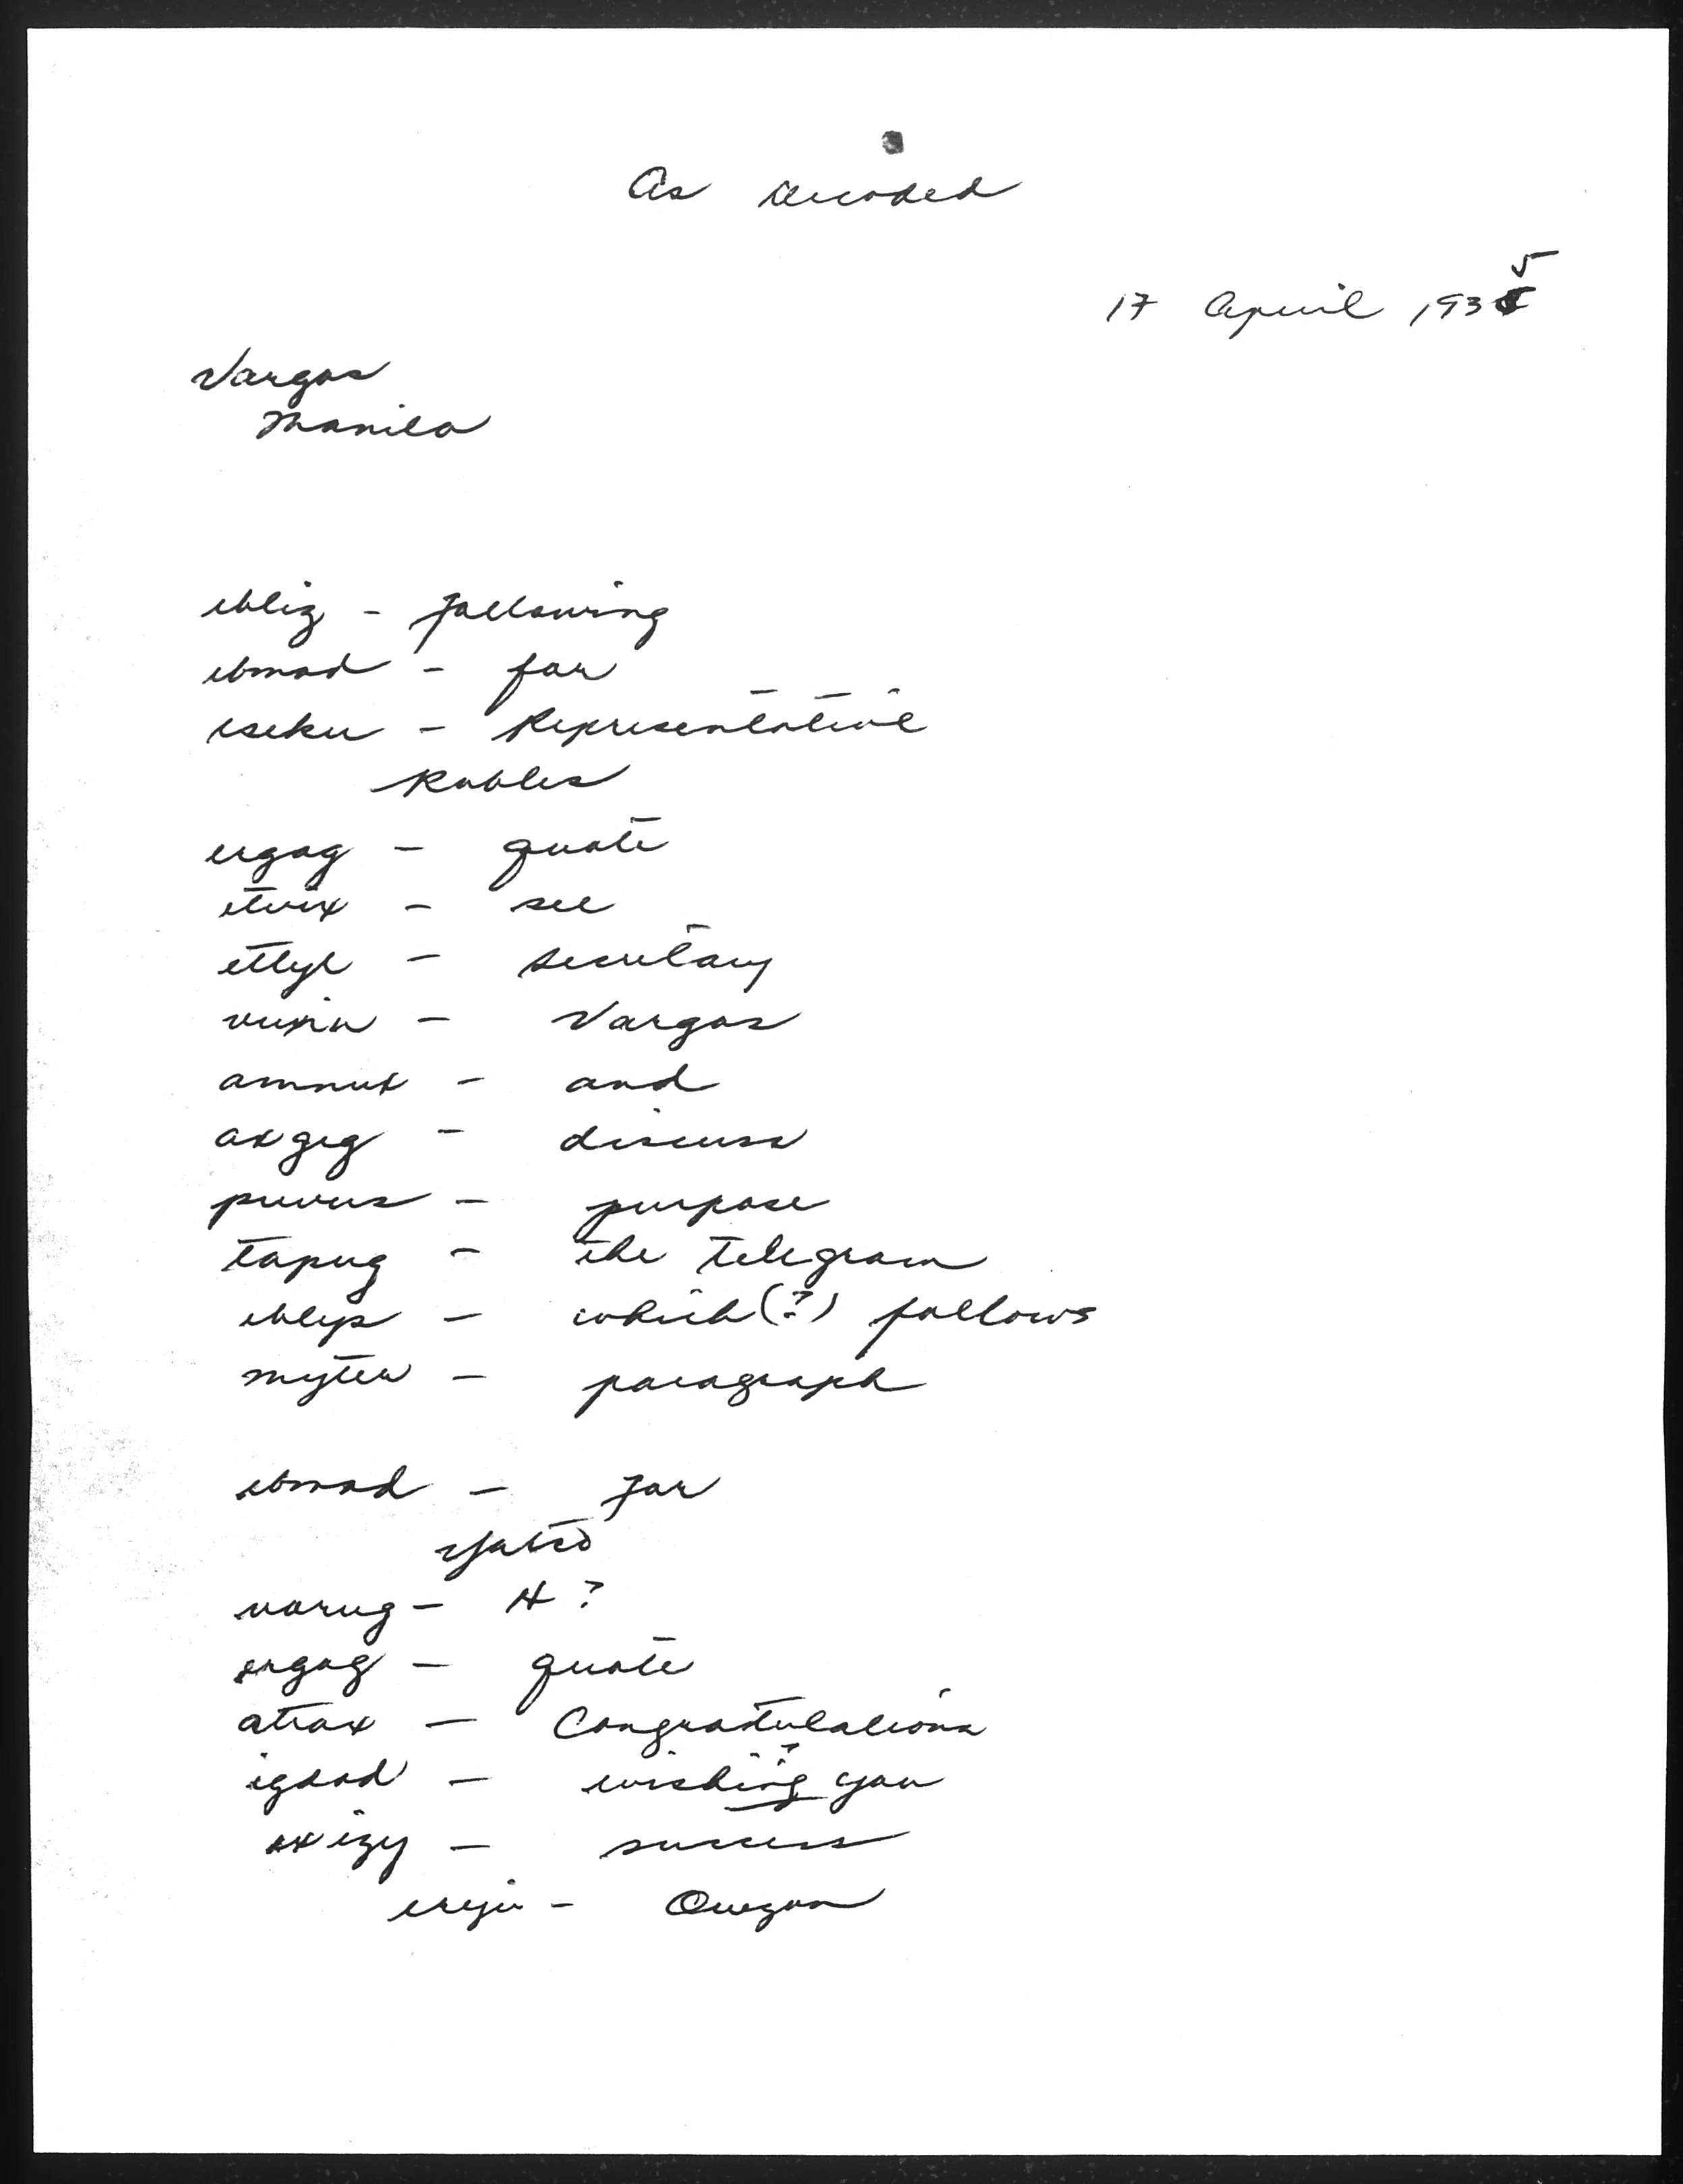 As decoded
17 April 1935
Vargas
Manila
ebliz - following
ebmad - for
eseku - Representative
Robles
ergag - quote
etvix - see
ettyl - secretary
- Vargas
amnux - and
axgeg - discuss
- purpose
tapug - the telegram
eblyp - which (?) follows
mytew - paragraph
ebmad - for
varug - H ?
ergag - quote
atrax - Congratulations
- wishing ? you
exizy - success
- Quezon